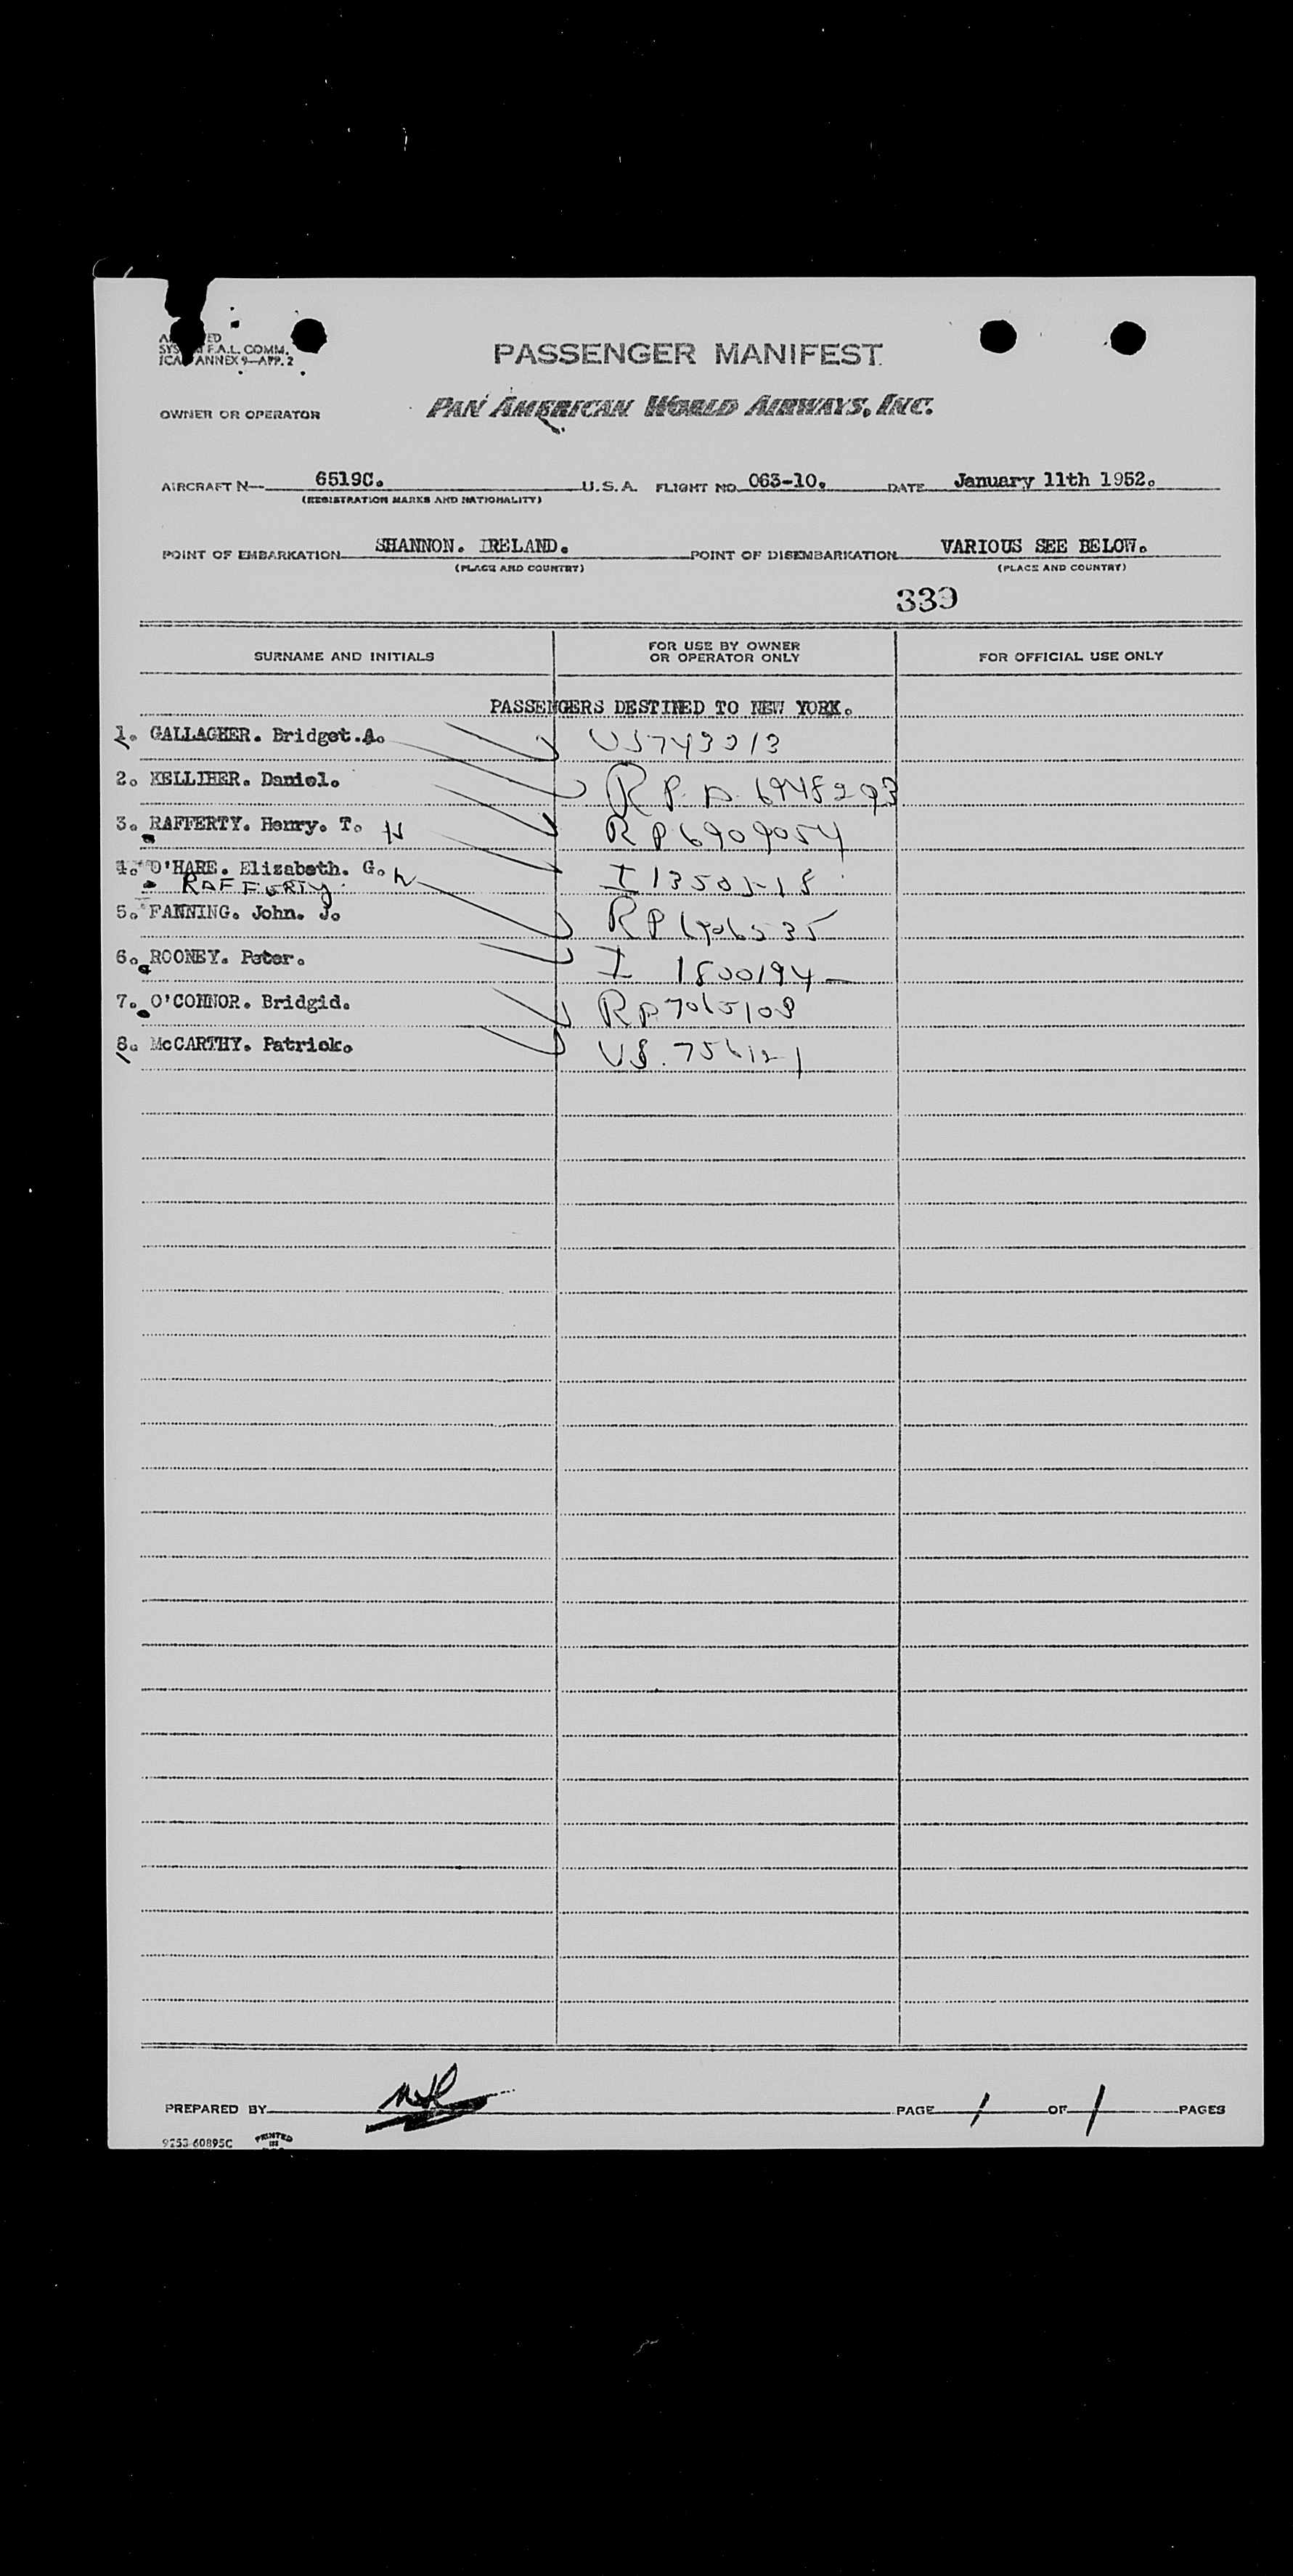 ED
F.A.L. COMM.
ANNEX 9—APP. 2
PASSENGER MANIFEST
OWNER OR OPERATOR PAN AMERICAN WORLD AIRWAYS, INC.
AIRCRAFT N— 6519C. U.S.A. FLIGHT NO. 063-10. DATE January 11th 1952.
(REGISTRATION MARKS AND NATIONALITY)
POINT OF EMBARKATION SHANNON. IRELAND. POINT OF DISEMBARKATION VARIOUS SEE BELOW.
(PLACE AND COUNTRY) (PLACE AND COUNTRY)
339
SURNAME AND INITIALS FOR USE BY OWNER OR OPERATOR ONLY FOR OFFICIAL USE ONLY
PASSENGERS DESTINED TO NEW YORK.
1. GALLAGHER. Bridget.A.
2. KELLIHER. Daniel. R P
3. RAFFERTY. Henry. T. RP6909054
4. O'HARE. Elizabeth. G. I
RAFFERTY
5. FANNING. John. J. RP
6. ROONEY. Peter. I 1800194
7. O'CONNOR. Bridgid.
8. McCARTHY. Patrick.
PREPARED BY PAGE 1 OF 1 PAGES
9253-60895C PRINTED